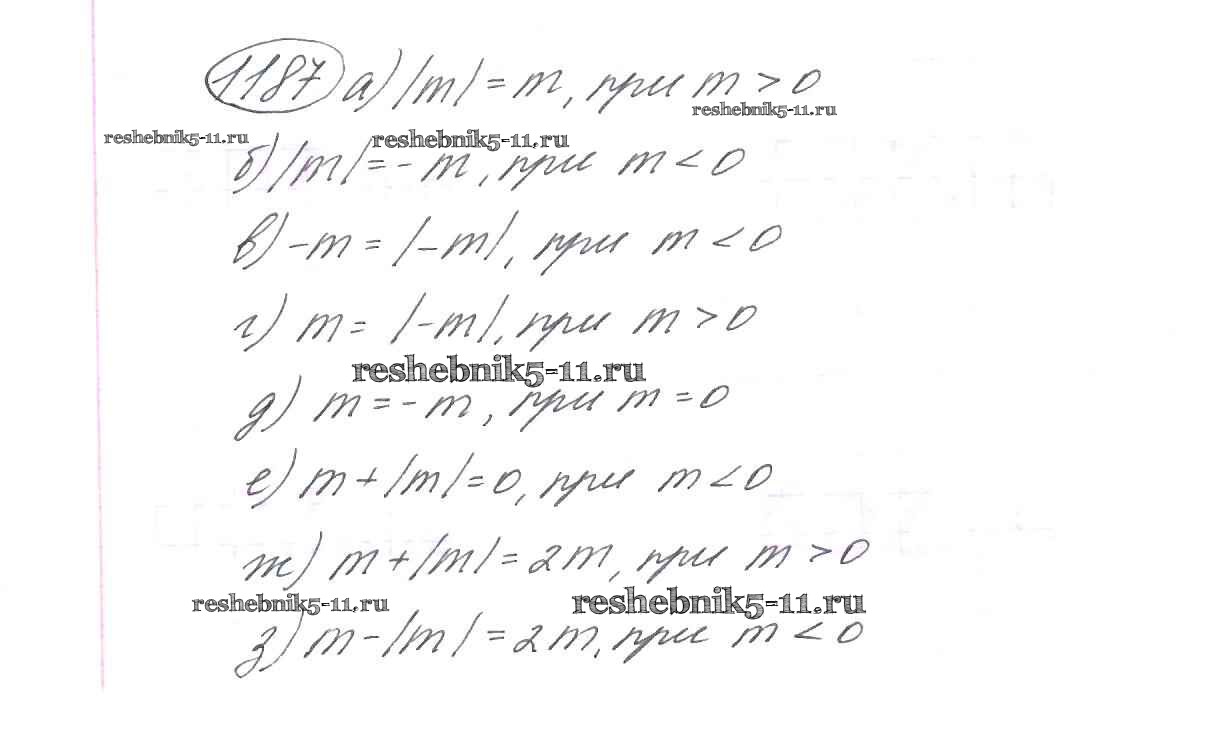 1187 а) |m| = m, при m > 0
reshebnik5-11.ru
reshebnik5-11.ru reshebnik5-11.ru
б) |m| = - m, при m < 0
в) -m = |-m|, при m < 0
г) m = |-m|, при m > 0
reshebnik5-11.ru
д) m = - m, при m = 0
е) m + |m| = 0, при m < 0
ж) m + |m| = 2m, при m > 0
reshebnik5-11.ru reshebnik5-11.ru
з) m - |m| = 2m, при m < 0